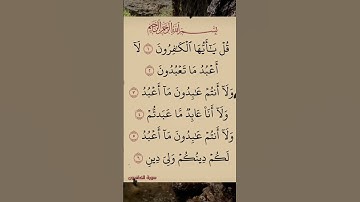 بسم الله الرحمن الرحيم
قُلْ يَـٰٓأَيُّهَا ٱلْكَـٰفِرُونَ ١ لَآ
أَعْبُدُ مَا تَعْبُدُونَ ٢
وَلَآ أَنتُمْ عَـٰبِدُونَ مَآ أَعْبُدُ ٣
وَلَآ أَنَا۠ عَابِدٌ مَّا عَبَدتُّمْ ٤
وَلَآ أَنتُمْ عَـٰبِدُونَ مَآ أَعْبُدُ ٥
لَكُمْ دِينُكُمْ وَلِىَ دِينِ ٦